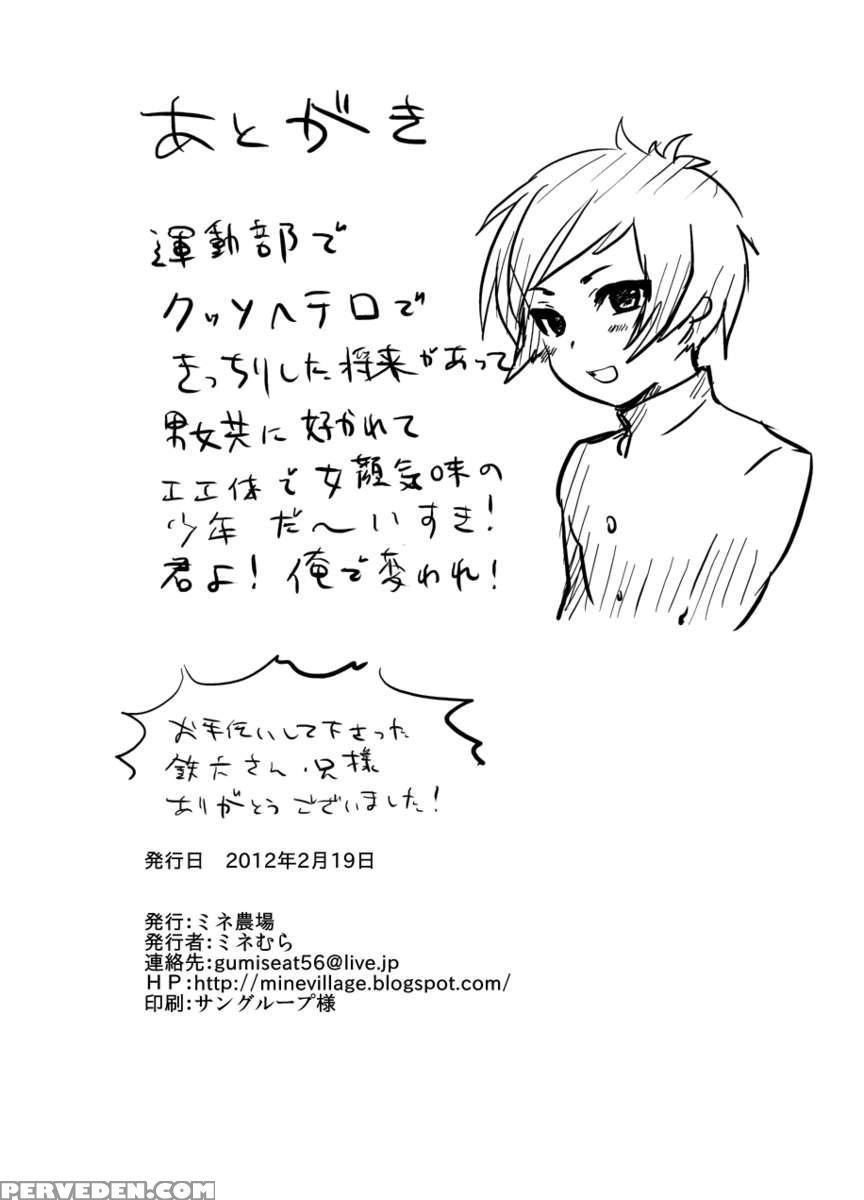 あとがき
運動部で
クッソヘテロで
きっちりした将来があって
男女共に好かれて
エエ体で女顔気味の
少年 だ〜いすき!
君よ!俺で変われ!
お手伝いして下さった
鉄六さん、兄様
ありがとうございました!
発行日 2012年2月19日
発行:ミネ農場
発行者:ミネむら
連絡先:gumiseat56@live.jp
HP:http://minevillage.blogspot.com/
印刷:サングループ様
PERVEDEN.COM